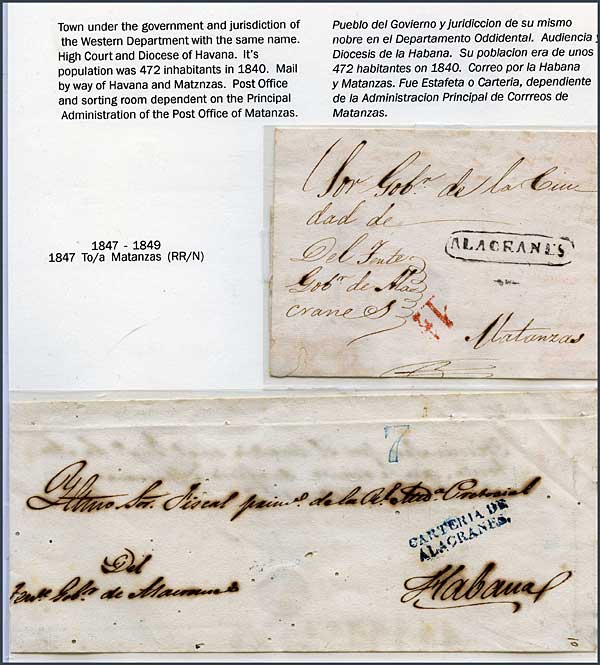 Town under the government and jurisdiction of
the Western Department with the same name.
High Court and Diocese of Havana. It's
population was 472 inhabitants in 1840. Mail
by way of Havana and Matznzas. Post Office
and sorting room dependent on the Principal
Administration of the Post Office of Matanzas.
Pueblo del Govierno y juridiccion de su mismo
nobre en el Departamento Oddidental. Audiencia y
Diocesis de la Habana. Su poblacion era de unos
472 habitantes on 1840. Correo por la Habana
y Matanzas. Fue Estafeta o Carteria, dependiente
de la Administracion Principal de Corrreos de
Matanzas.
1847 - 1849
1847 To/a Matanzas (RR/N)
Sor Gobr. de la Ciu
dad de
Del Tente
Gobr. de Ala
cranes
ALACRANES
Matanzas
7
Yltmo Sor. Fiscal de la Rl. Auda. Pretorial
CARTERIA DE
ALACRANES.
Del
Tente Gobr. de Alacranes
Habana
10